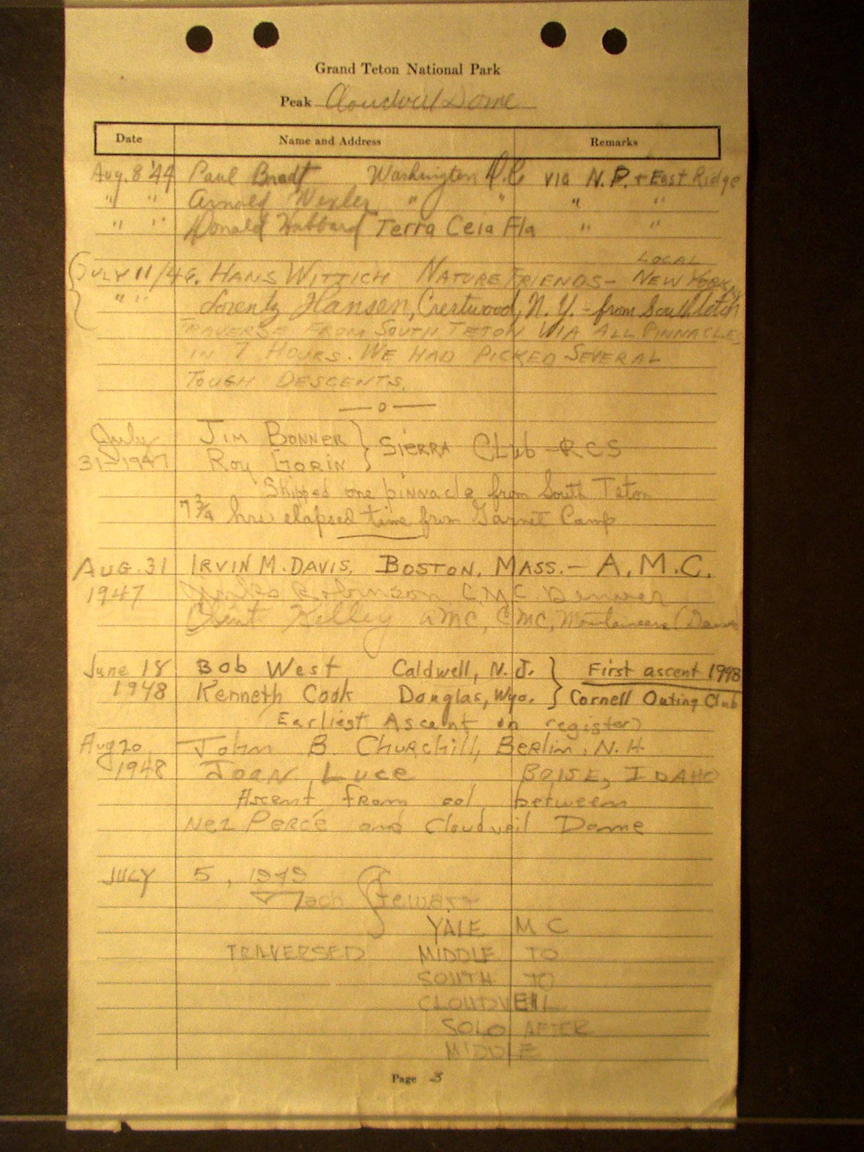 Grand Teton National Park
Peak Cloudveil Dome
Date Name and Address Remarks
Aug. 8 '44 Paul Bradt Washington D.C via N.P. + East Ridge
" " Arnold Wexler " " " "
" " Donald Hubbard Terra Ceia Fla " "
LOCAL
JULY 11/46. HANS WITTICH NATURE FRIENDS- NEW YORK
" " Lorentz Hansen, Crestwood, N.Y. - from
TRAVERSE FROM SOUTH TETON VIA ALL PINNACLES
IN 7 HOURS. WE HAD PICKED SEVERAL
TOUGH DESCENTS.
— o —
July JIM BONNER } SIERRA Club - RCS
31-1947 Roy GORIN
Skipped one pinnacle from South Teton
7 3/4 hrs elapsed time from Garnet Camp
AUG. 31 IRVIN M. DAVIS, BOSTON, MASS. - A.M.C.
1947 Robinson CMC Denver
Clint Kelley AMC, CMC, Mountaineers
June 18 Bob West Caldwell, N.J. } First ascent 1948
1948 Kenneth Cook Douglas, Wyo. Cornell Outing Club
Earliest Ascent on register)
Aug 20, John B. Churchill, Berlin, N.H.
1948 Joan Luce BOISE, IDAHO
Ascent from col between
Nez Percé and Cloudveil Dome
JULY 5, 1949
Zach Stewart
YALE M C
TRAVERSED MIDDLE TO
SOUTH TO
CLOUDVEIL
SOLO AFTER
MIDDLE
Page 3